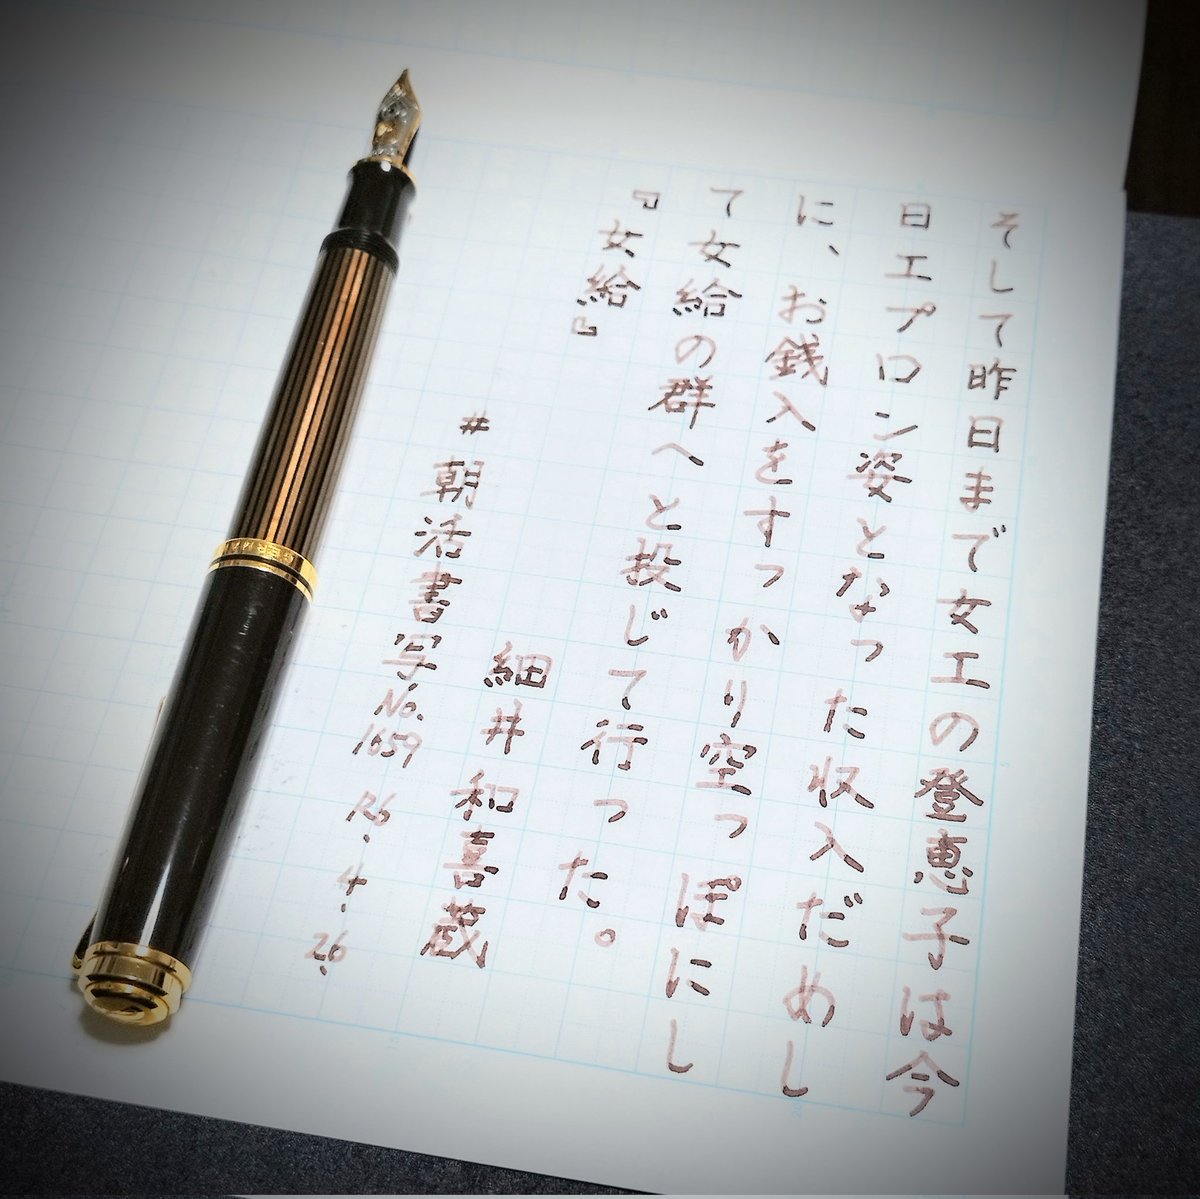 そして昨日まで女工の登恵子は今
日エプロン姿となった収入だめし
に、お銭入をすっかり空っぽにし
て女給の群へと投じて行った。
『女給』
細井和喜蔵
#朝活書写No.1659
R6.4.26.